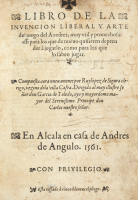 LIBRO DE LA
INVENCION LIBERAL Y ARTE
del juego del Axedrez, muy util y prouechosa:
assi para los que de nueuo quisieren deprender
à jugarlo, como para los que
lo saben jugar.
Compuesta aora nueuamente por Ruylopez de Sigura clerigo,
vezino dela villa Cafra. Dirigida al muy illustre señor
don Garcia de Toledo, ayo y mayordomo mayor
del Serenissimo Principe don
Carlos nuestro señor.
En Alcala en casa de Andres
de Angulo. 1561.
CON PRIVILEGIO.